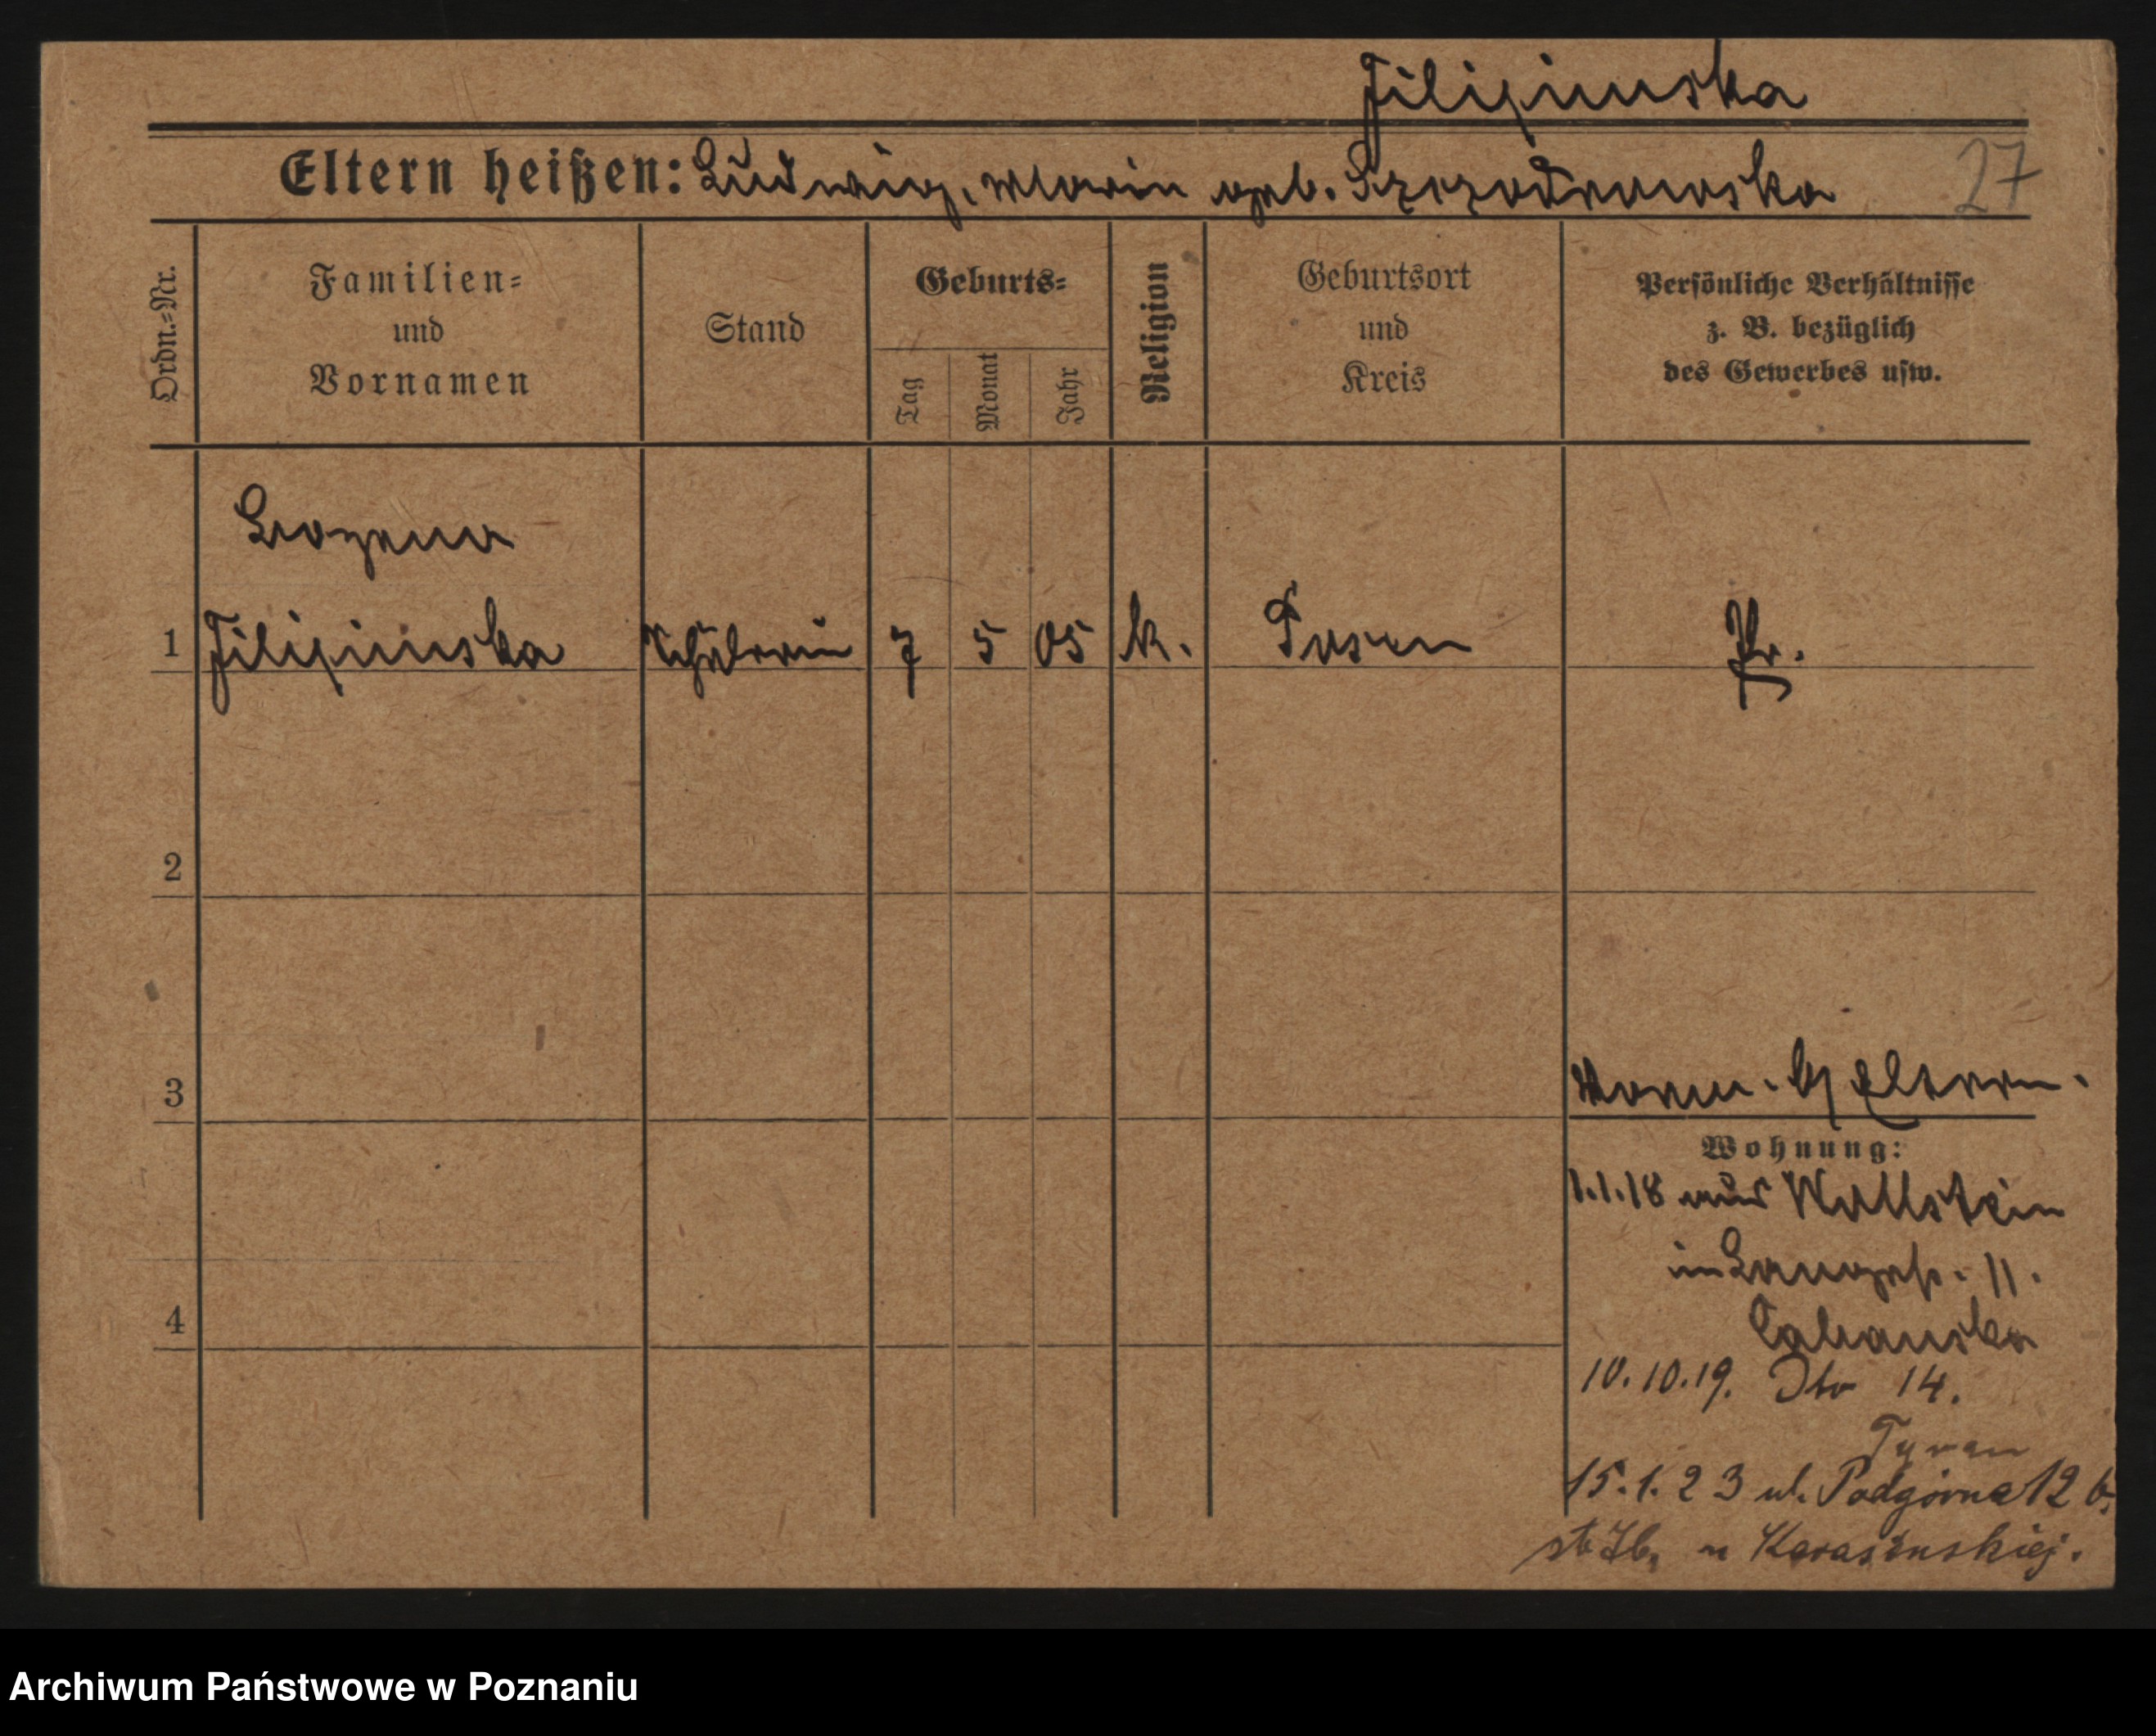 Filipinska
Eltern heißen: Ludwig, Marie geb. Szczodrowska 27
Ordn.-Nr.
Familien- und Vornamen
Stand
Geburts-
Tag
Monat
Jahr
Religion
Geburtsort und Kreis
Persönliche Verhältnisse z. B. bezüglich des Gewerbes usw.
1 Filipinska Schülerin 7 5 05 k. Posen Pr.
2
3
Eltern.
Wohnung:
1.1.18 aus Wollstein
11.
4
10.10.19. Dto 14.
15.1.23 ul. Podgórna 12 b,
Karasinskiej.
Archiwum Państwowe w Poznaniu